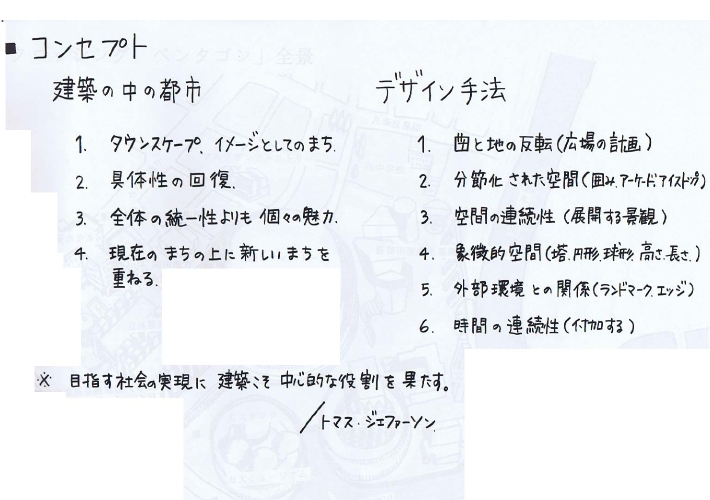 ■ コンセプト
建築の中の都市
1. タウンスケープ、イメージとしてのまち.
2. 具体性の回復.
3. 全体の統一性よりも 個々の魅力.
4. 現在の まちの上に新しいまちを
重ねる.
デザイン手法
1. 図と地の反転(広場の計画)
2. 分節化 された空間(囲み.アーケード.アイストップ)
3. 空間の連続性 (展開する景観)
4. 象徴的空間(塔.円形.球形.高さ.長さ.)
5. 外部環境との関係(ランドマーク.エッジ)
6. 時間の連続性(付加する)
※ 目指す社会の実現に 建築こそ 中心的な役割を果たす。
／トマス・ジェファーソン.